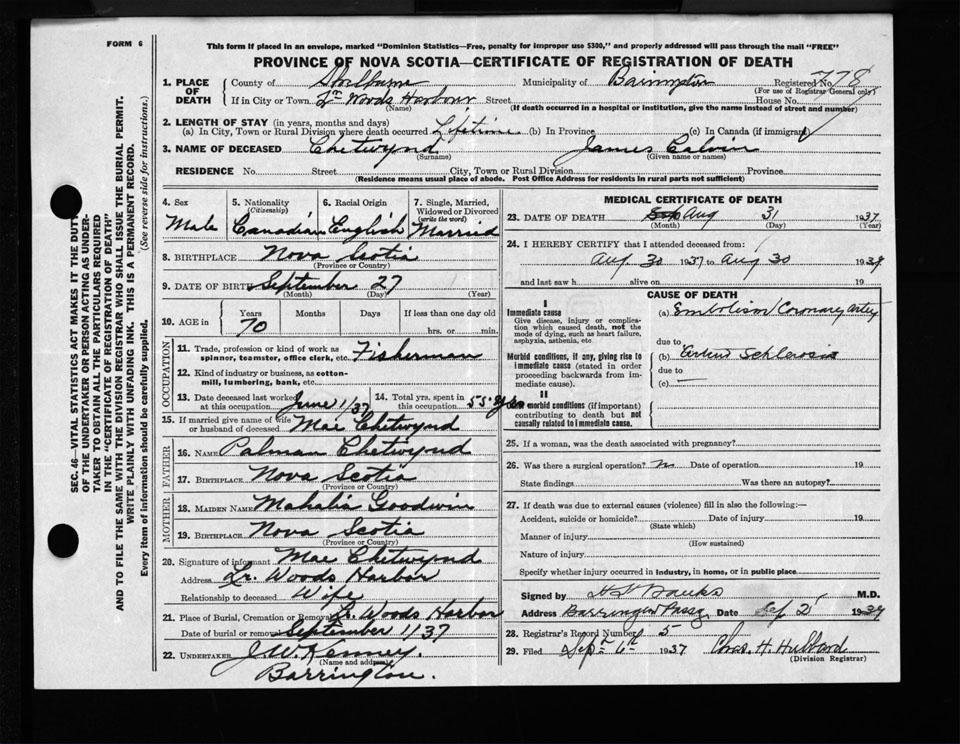 FORM 6
This form if placed in an envelope, marked "Dominion Statistics—Free, penalty for improper use $300," and properly addressed will pass through the mail "FREE"
PROVINCE OF NOVA SCOTIA—CERTIFICATE OF REGISTRATION OF DEATH
1. PLACE OF DEATH County of Shelburne Municipality of Barrington Registered No. 778
(For use of Registrar General only)
If in City or Town Lr Woods Harbour Street House No.
(Name) (If death occurred in a hospital or institution, give name instead of street and number)
2. LENGTH OF STAY (in years, months and days)
(a) In City, Town or Rural Division where death occurred Lifetime (b) In Province (c) In Canada (if immigrant)
3. NAME OF DECEASED Chetwynd James Calvin
(Surname) (Given name or names)
RESIDENCE No. Street City, Town or Rural Division Province
(Residence means usual place of abode. Post Office Address for residents in rural parts not sufficient)
4. Sex
Male
5. Nationality
(Citizenship)
Canadian
6. Racial Origin
English
7. Single, Married, Widowed or Divorced
(write the word)
Married
8. BIRTHPLACE Nova Scotia
(Province or Country)
9. DATE OF BIRTH September 27
(Month) (Day) (Year)
10. AGE in Years Months Days If less than one day
70 hrs. or min.
OCCUPATION
11. Trade, profession or kind of work as spinner, teamster, office clerk, etc. Fisherman
12. Kind of industry or business, as cotton-mill, lumbering, bank, etc.
13. Date deceased last worked at this occupation June 1/37
14. Total yrs. spent in this occupation 55
15. If married give name of wife or husband of deceased Mae Chetwynd
FATHER
16. NAME Palman Chetwynd
17. BIRTHPLACE Nova Scotia
(Province or Country)
MOTHER
18. MAIDEN NAME Mahalia Goodwin
19. BIRTHPLACE Nova Scotia
(Province or Country)
20. Signature of informant Mae Chetwynd
Address Lr. Woods Harbor
Relationship to deceased Wife
21. Place of Burial, Cremation or Removal Lr Woods Harbor
Date of burial or removal September 1/37
22. UNDERTAKER J.W. Kenney.
(Name and address)
Barrington.
MEDICAL CERTIFICATE OF DEATH
23. DATE OF DEATH Aug 31 1937
(Month) (Day) (Year)
24. I HEREBY CERTIFY that I attended deceased from
Aug 30 1937 to Aug 30 19
and last saw h alive on 19
CAUSE OF DEATH
I
Immediate cause
Give disease, injury or complication which caused death, not the mode of dying, such as heart failure, asphyxia, asthenia, etc
(a) Embolism Coronary Artery
due to
Morbid conditions, if any, giving rise to immediate cause (stated in order proceeding backwards from immediate cause).
(b)
due to
(c)
II
Other morbid conditions (if important) contributing to death but not causally related to immediate cause.
25. If a woman, was the death associated with pregnancy?
26. Was there a surgical operation? No Date of operation 19
State findings Was there an autopsy?
27. If death was due to external causes (violence) fill in also the following:—
Accident, suicide or homicide? Date of injury 19
(State which)
Manner of injury
(How sustained)
Nature of injury
Specify whether injury occurred in industry, in home, or in public place
Signed by Banks M.D.
Address Barrington Passg Date Sep 2 19
28. Registrar's Record Number 5
29. Filed Sept 6th 1937 Chas. H. Hubbard
(Division Registrar)
SEC. 46—VITAL STATISTICS ACT MAKES IT THE DUTY
OF THE UNDERTAKER OR PERSON ACTING AS UNDER-
TAKER TO OBTAIN ALL THE PARTICULARS REQUIRED
IN THE "CERTIFICATE OF REGISTRATION OF DEATH"
AND TO FILE THE SAME WITH THE DIVISION REGISTRAR WHO SHALL ISSUE THE BURIAL PERMIT.
WRITE PLAINLY WITH UNFADING INK. THIS IS A PERMANENT RECORD.
Every item of information should be carefully supplied. (See reverse side for instructions.)